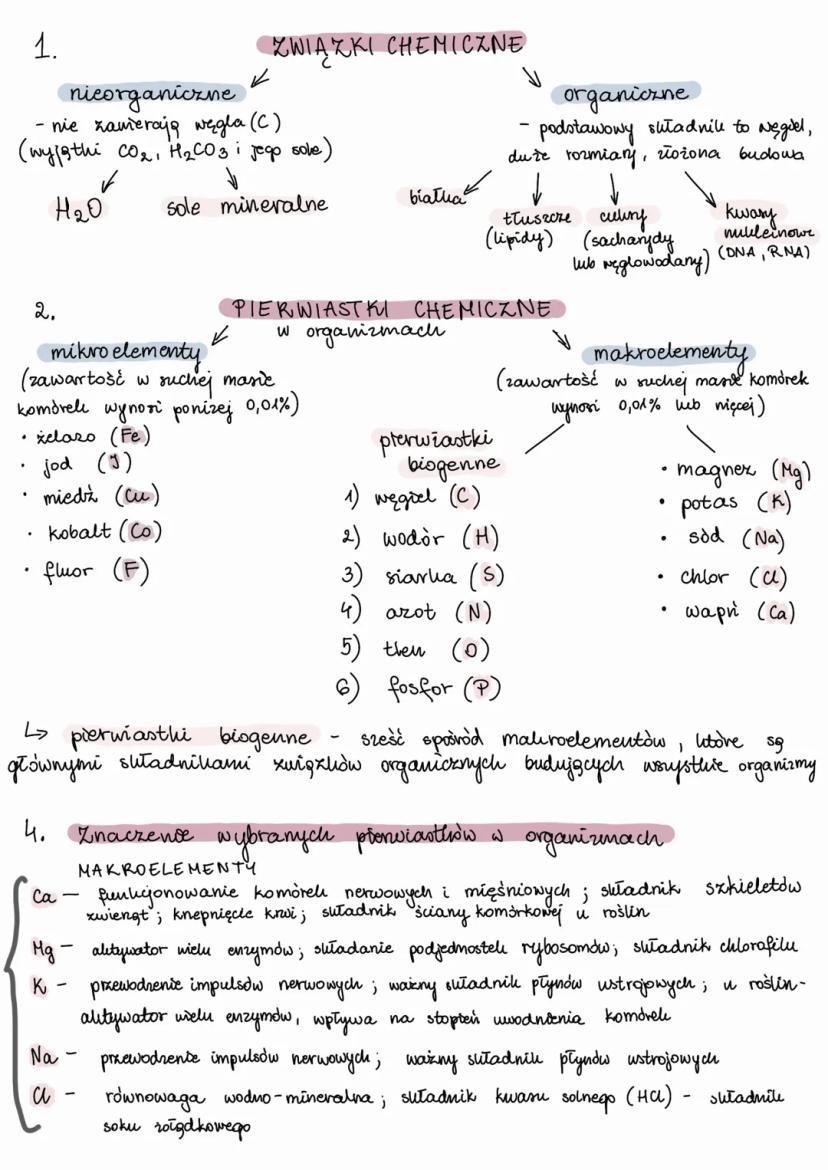 1. ZWIĄZKI CHEMICZNE
nieorganiczne
- nie zawierają węgla (C)
(wyjątki CO2, H2CO3 i jego sole)
H2O
sole mineralne
organiczne
- podstawowy składnik to węgiel,
duże rozmiary, złożona budowa
białka
tłuszcze
(lipidy)
cukry
(sacharydy
lub węglowodany)
kwasy
nukleinowe
(DNA, RNA)
2. PIERWIASTKI CHEMICZNE
w organizmach
mikroelementy
(zawartość w suchej masie
komórek wynosi poniżej 0,01%)
• żelazo (Fe)
• jod (J)
• miedź (Cu)
• kobalt (Co)
• fluor (F)
makroelementy
(zawartość w suchej masie komórek
wynosi 0,01% lub więcej)
pierwiastki
biogenne
1) węgiel (C)
2) wodór (H)
3) siarka (S)
4) azot (N)
5) tlen (O)
6) fosfor (P)
• magnez (Mg)
• potas (K)
• sód (Na)
• chlor (Cl)
• wapń (Ca)
↳ pierwiastki biogenne - sześć spośród makroelementów, które są
głównymi składnikami związków organicznych budujących wszystkie organizmy
4. Znaczenie wybranych pierwiastków w organizmach
MAKROELEMENTY
Ca - funkcjonowanie komórek nerwowych i mięśniowych; składnik szkieletów
zwierząt; krzepnięcie krwi; składnik ściany komórkowej u roślin
Mg - aktywator wielu enzymów; składanie podjednostek rybosomów; składnik chlorofilu
K - przewodzenie impulsów nerwowych; ważny składnik płynów ustrojowych; u roślin-
aktywator wielu enzymów, wpływa na stopień uwodnienia komórek
Na - przewodzenie impulsów nerwowych; ważny składnik płynów ustrojowych
Cl - równowaga wodno-mineralna; składnik kwasu solnego (HCl) - składnik
soku żołądkowego